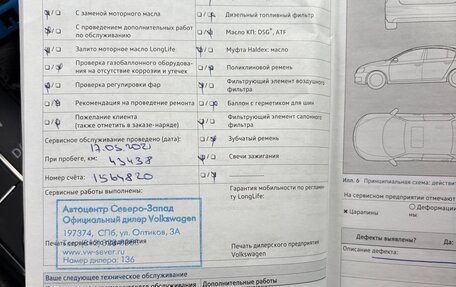 С заменой моторного масла
С проведением дополнительных работ
по обслуживанию
Залито моторное масло LongLife.
Проверка газобаллонного оборудова-
ния на отсутствие коррозии и утечек
Проверка регулировки фар
Рекомендация на проведение ремонта
Пожелание клиента
(также отметить в заказе-наряде)
Сервисное обслуживание проведено (дата):
17.05.2021
При пробеге, км: 43438
Номер счёта: 1564820
Сервисные работы выполнены:
Автоцентр Северо-Запад
Официальный дилер Volkswagen
197374, СПб, ул. Оптиков, 3А
Печать сервисного предприятия
www.vw-sever.ru
Номер дилера: 136
Ваше следующее техническое обслуживание
Дизельный топливный фильтр
Масло КП: DSG®, ATF
Муфта Haldex: масло
Поликлиновой ремень
Фильтрующий элемент воздушного
фильтра
Баллон с герметиком для шин
Фильтрующий элемент салонного
фильтра
Зубчатый ремень
Свечи зажигания
Гарантия мобильности по регламен-
ту LongLife:
Печать дилерского предприятия
Volkswagen
Дополнительные работы
Илл. 6 Принципиальная схема: действит
На сервисном предприятии отмечают
Царапины
Деформации
Дефекты выявлены? Да
Описание дефекта: